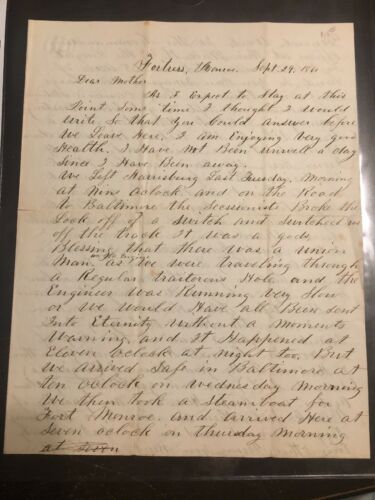 Fortress, Monroe. Sept. 29. 186
Dear Mother
As I Expect to Stay at this
Point Some time I thought I Would
Write So that You Could Answer before
We Leave Here. I am Enjoying Very good
Health. I Have Not Been Unwell a day
Since I Have Been away.
We Left Harrisburg Last Tuesday. Morning
at Nine Oclock and on the Road
to Baltimore the Secessionists Broke the
Lock off of a Switch and Switched us
off the track It was a gods
Blessing that there was a union
Man. as the Engineer We were traveling through
a Regular traitorous Hole and the
Engineer Was Running Very Slow
or we Would Have all Been Sent
Into Eternity without a Moments
Warning. and It Happened at
Eleven Oclock at Night too. But
We arrived Safe in Baltimore at
ten oclock on Wednesday Morning
We then took a Steamboat for
Fort Monroe. and arrived Here at
Seven oclock on thursday Morning
at Seven